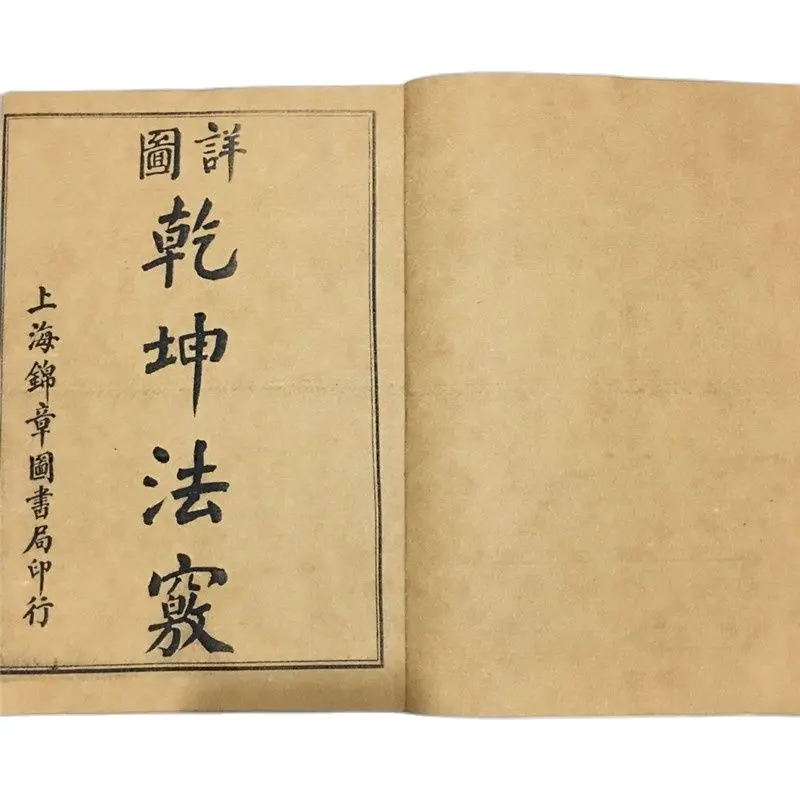 詳圖
乾坤法竅
上海錦章圖書局印行